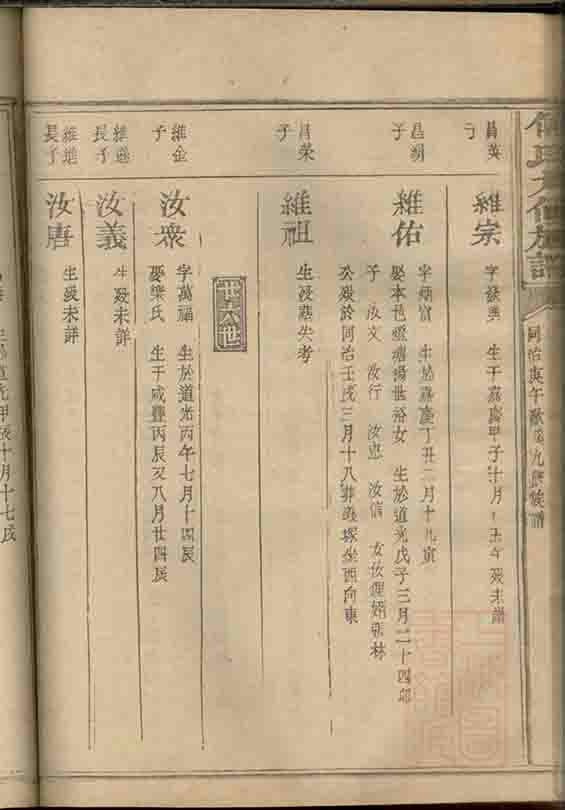 昌英
子
維宗
字發興 生于嘉慶甲子十月 午 歿未詳
昌明
子
維佑
字炳富 生於嘉慶丁丑二月十九寅
娶本邑 世裕女 生於道光戊子三月二十四卯
子 汝文 汝行 汝忠 汝信 女 林
公歿於同治壬戌三月十八葬 塚坐西向東
昌榮
子
維祖
生歿葬失考
廿六世
維金
子
汝衆
字萬福 生於道光丙午七月十四辰
娶樂氏 生于咸豐丙辰又八月廿四辰
維遜
長子
汝義
生歿未詳
維進
長子
汝唐
生歿未詳
同治庚午 九 族譜
道光甲辰十月十七戌